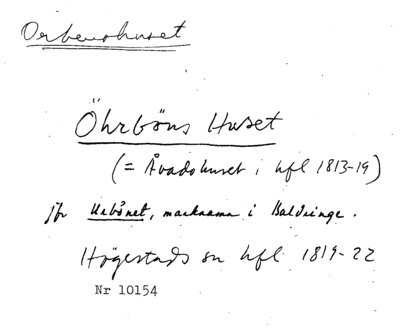 Orbenshuset
Öhrböns Huset
(= Åvadshuset i hfl 1813-19)
jfr Urbånet, marknamn i Baldringe.
Högestads sn hfl 1819-22
Nr 10154